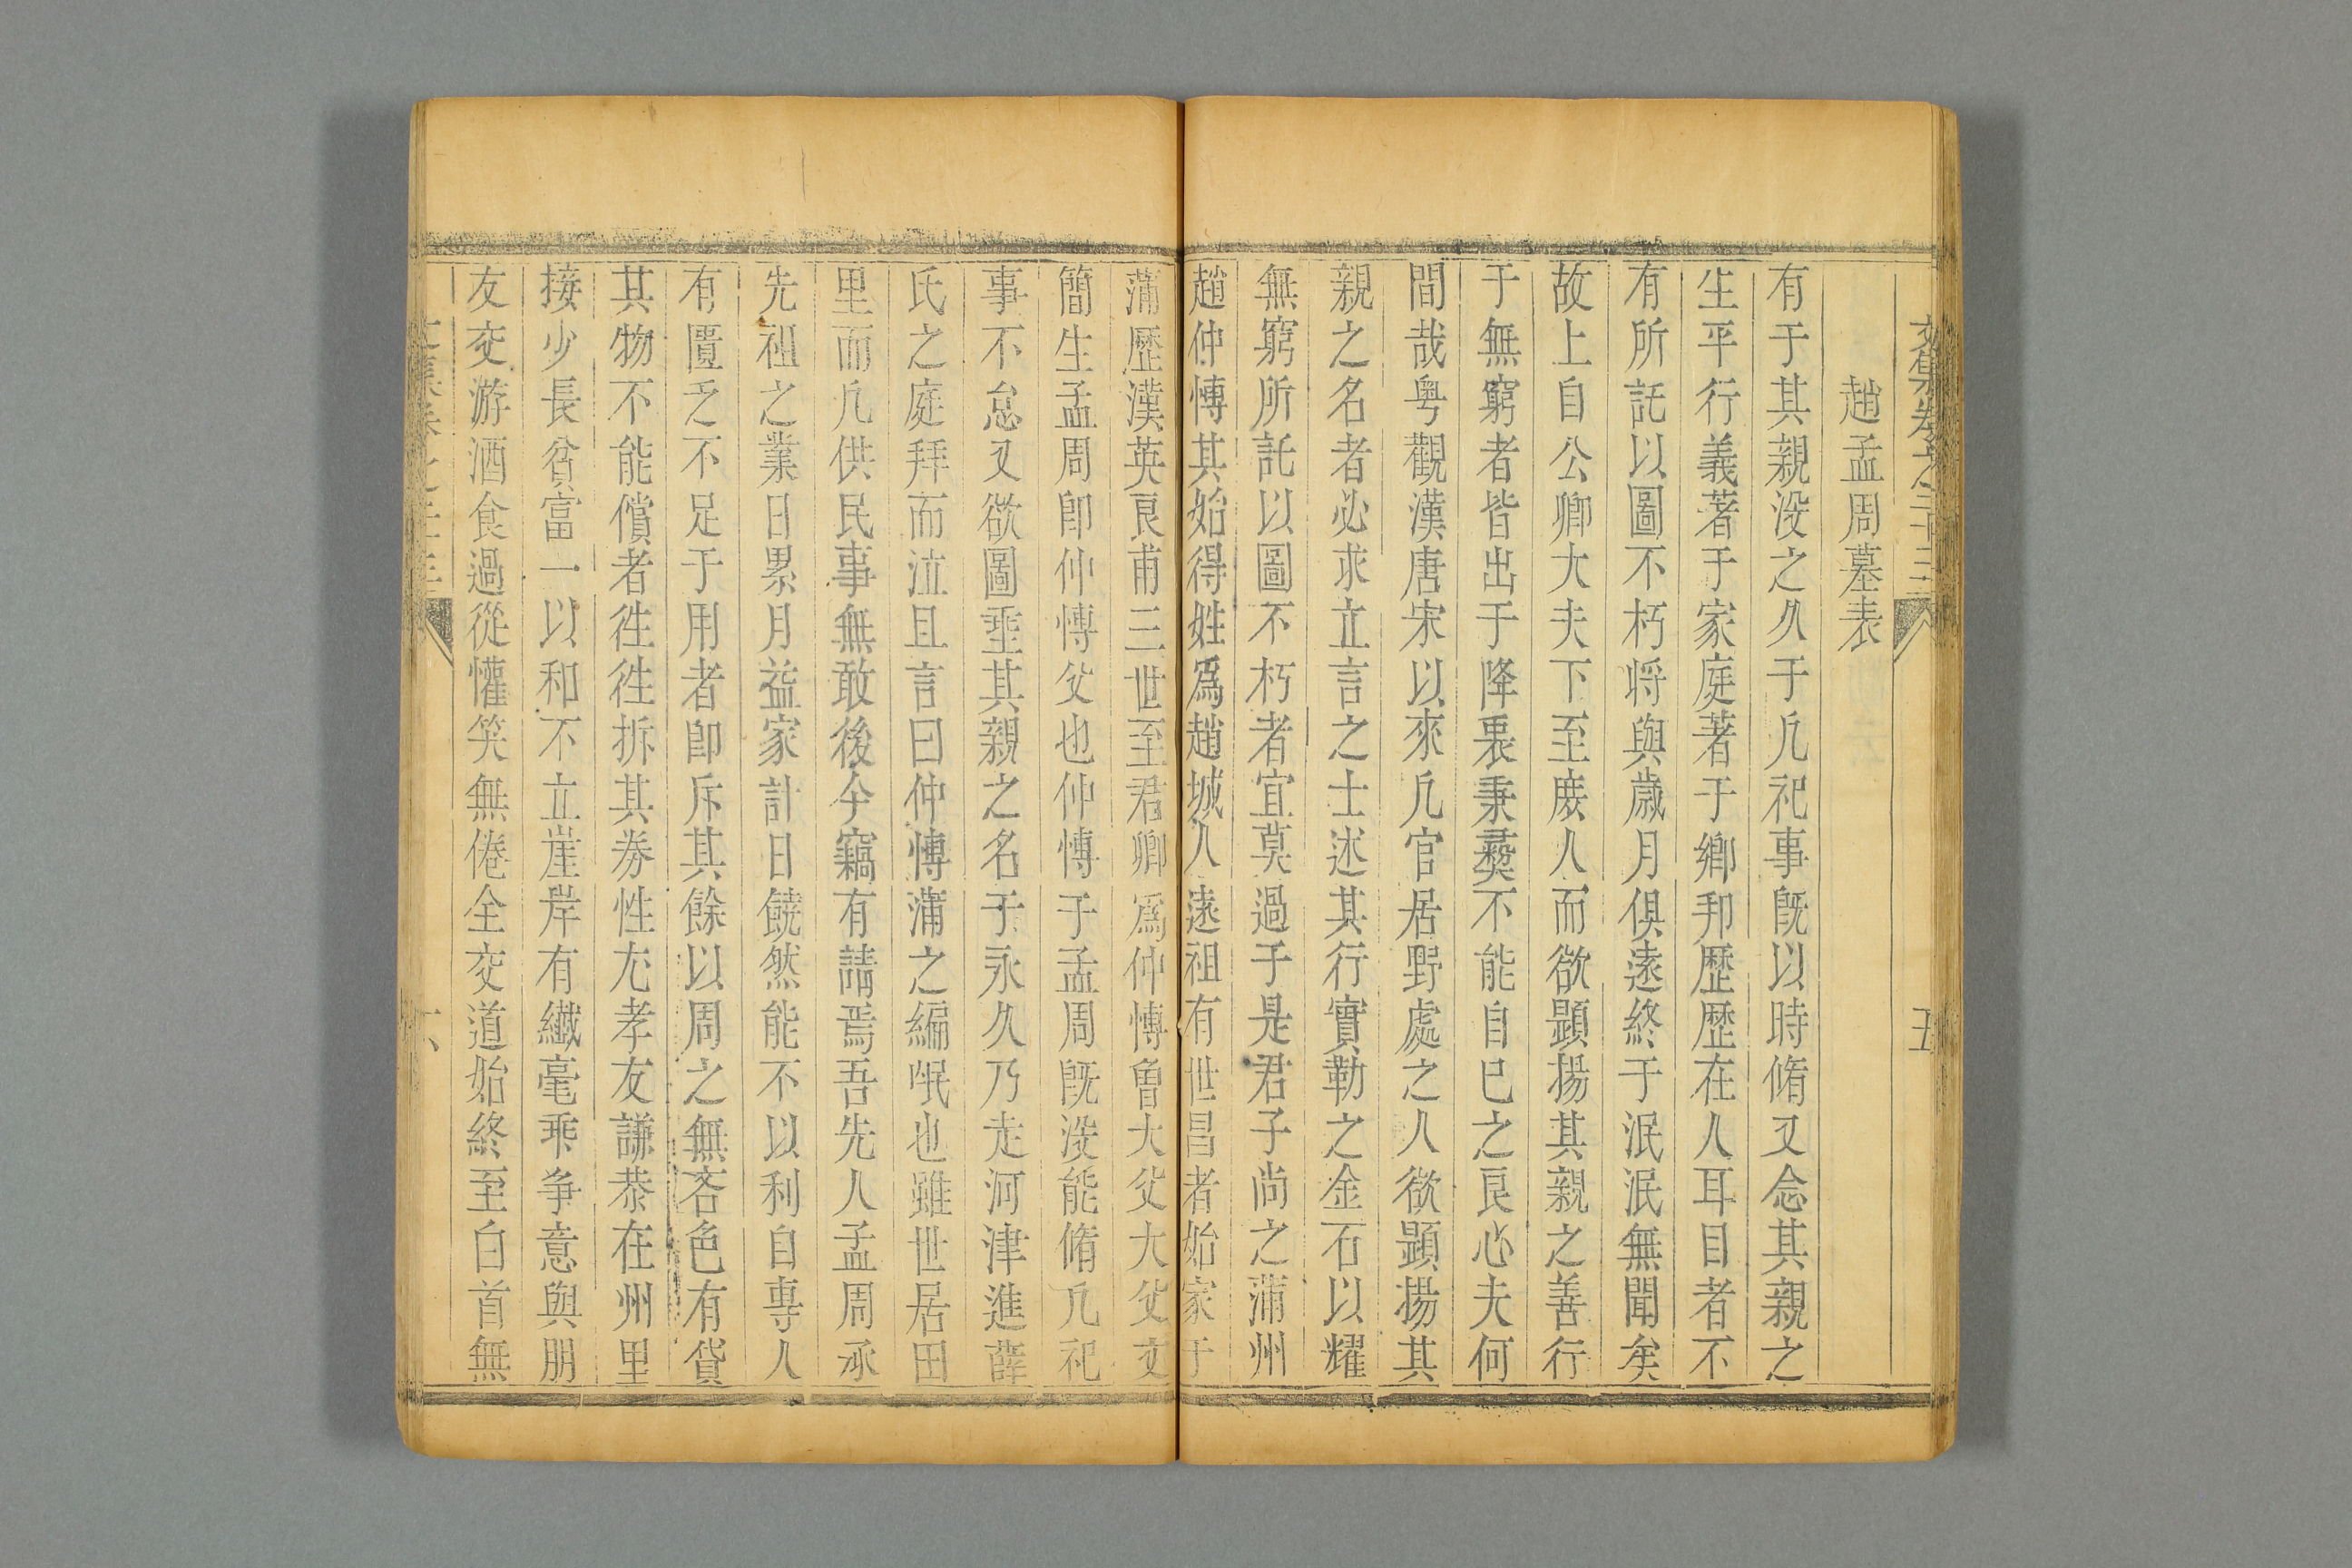 文集卷之二十三
五
趙孟周墓表
有于其親没之久于凡祀事旣以時脩又念其親之
生平行義著于家庭著于鄉邦歷歷在人耳目者不
有所託以圖不朽将與歲月俱遠終于泯泯無聞矣
故上自公卿大夫下至庻人而欲顯揚其親之善行
于無窮者皆出于降衷秉彞不能自已之良心夫何
間哉粤觀漢唐宋以來凡官居野處之人欲顯揚其
親之名者必求立言之士述其行實勒之金石以耀
無窮所託以圖不朽者宜莫過于是君子尚之蒲州
趙仲愽其始得姓爲趙城人遠祖有世昌者始家于
蒲歷漢英良甫三世至君卿爲仲愽曾大父大父文
簡生孟周卽仲愽父也仲愽于孟周旣没能脩凡祀
事不怠又欲圖垂其親之名于永久乃走河津進薛
氏之庭拜而泣且言曰仲愽蒲之編氓也雖世居田
里而凡供民事無敢後今竊有請焉吾先人孟周承
先祖之業日累月益家計日饒然能不以利自專人
有匱乏不足于用者卽斥其餘以周之無吝色有貸
其物不能償者徃徃拆其券性尤孝友謙恭在州里
接少長貧富一以和不立崖岸有纖毫乖争意與朋
友交游酒食過從懽笑無倦全交道始終至白首無
文集卷之二十三
六